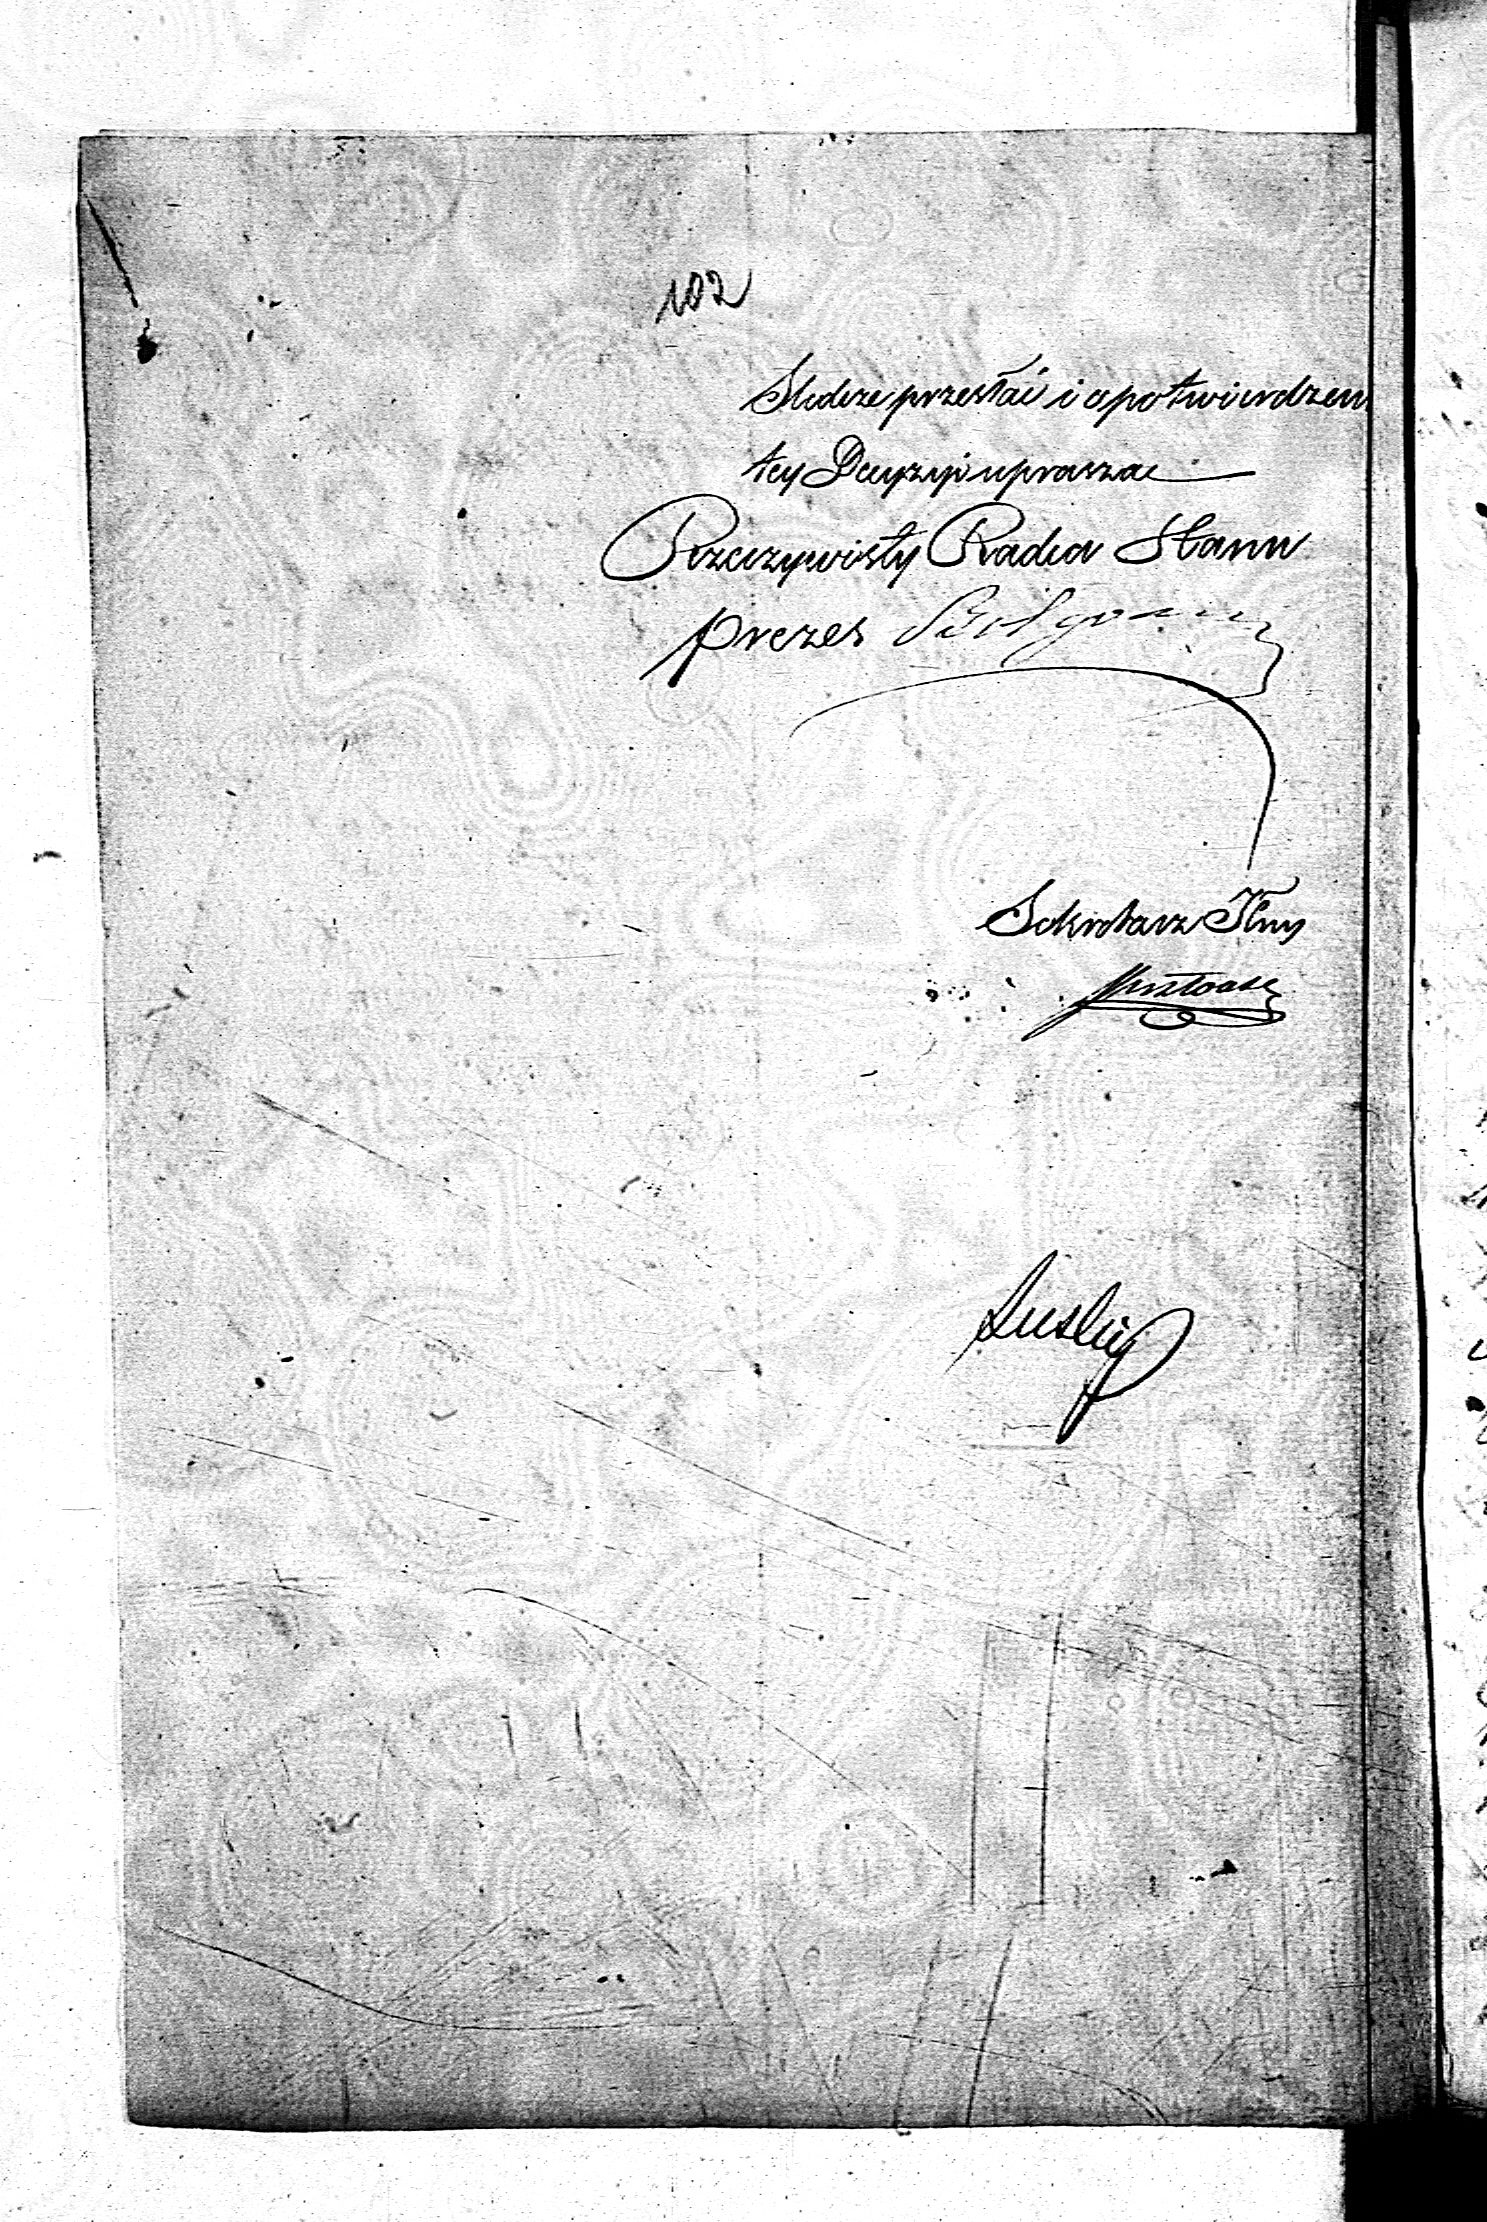 102
Śledcze przesłać i o potwierdzen
tey Decyzyi upraszać
Rzeczywisty Radca Stanu
Prezes
Sekretarz